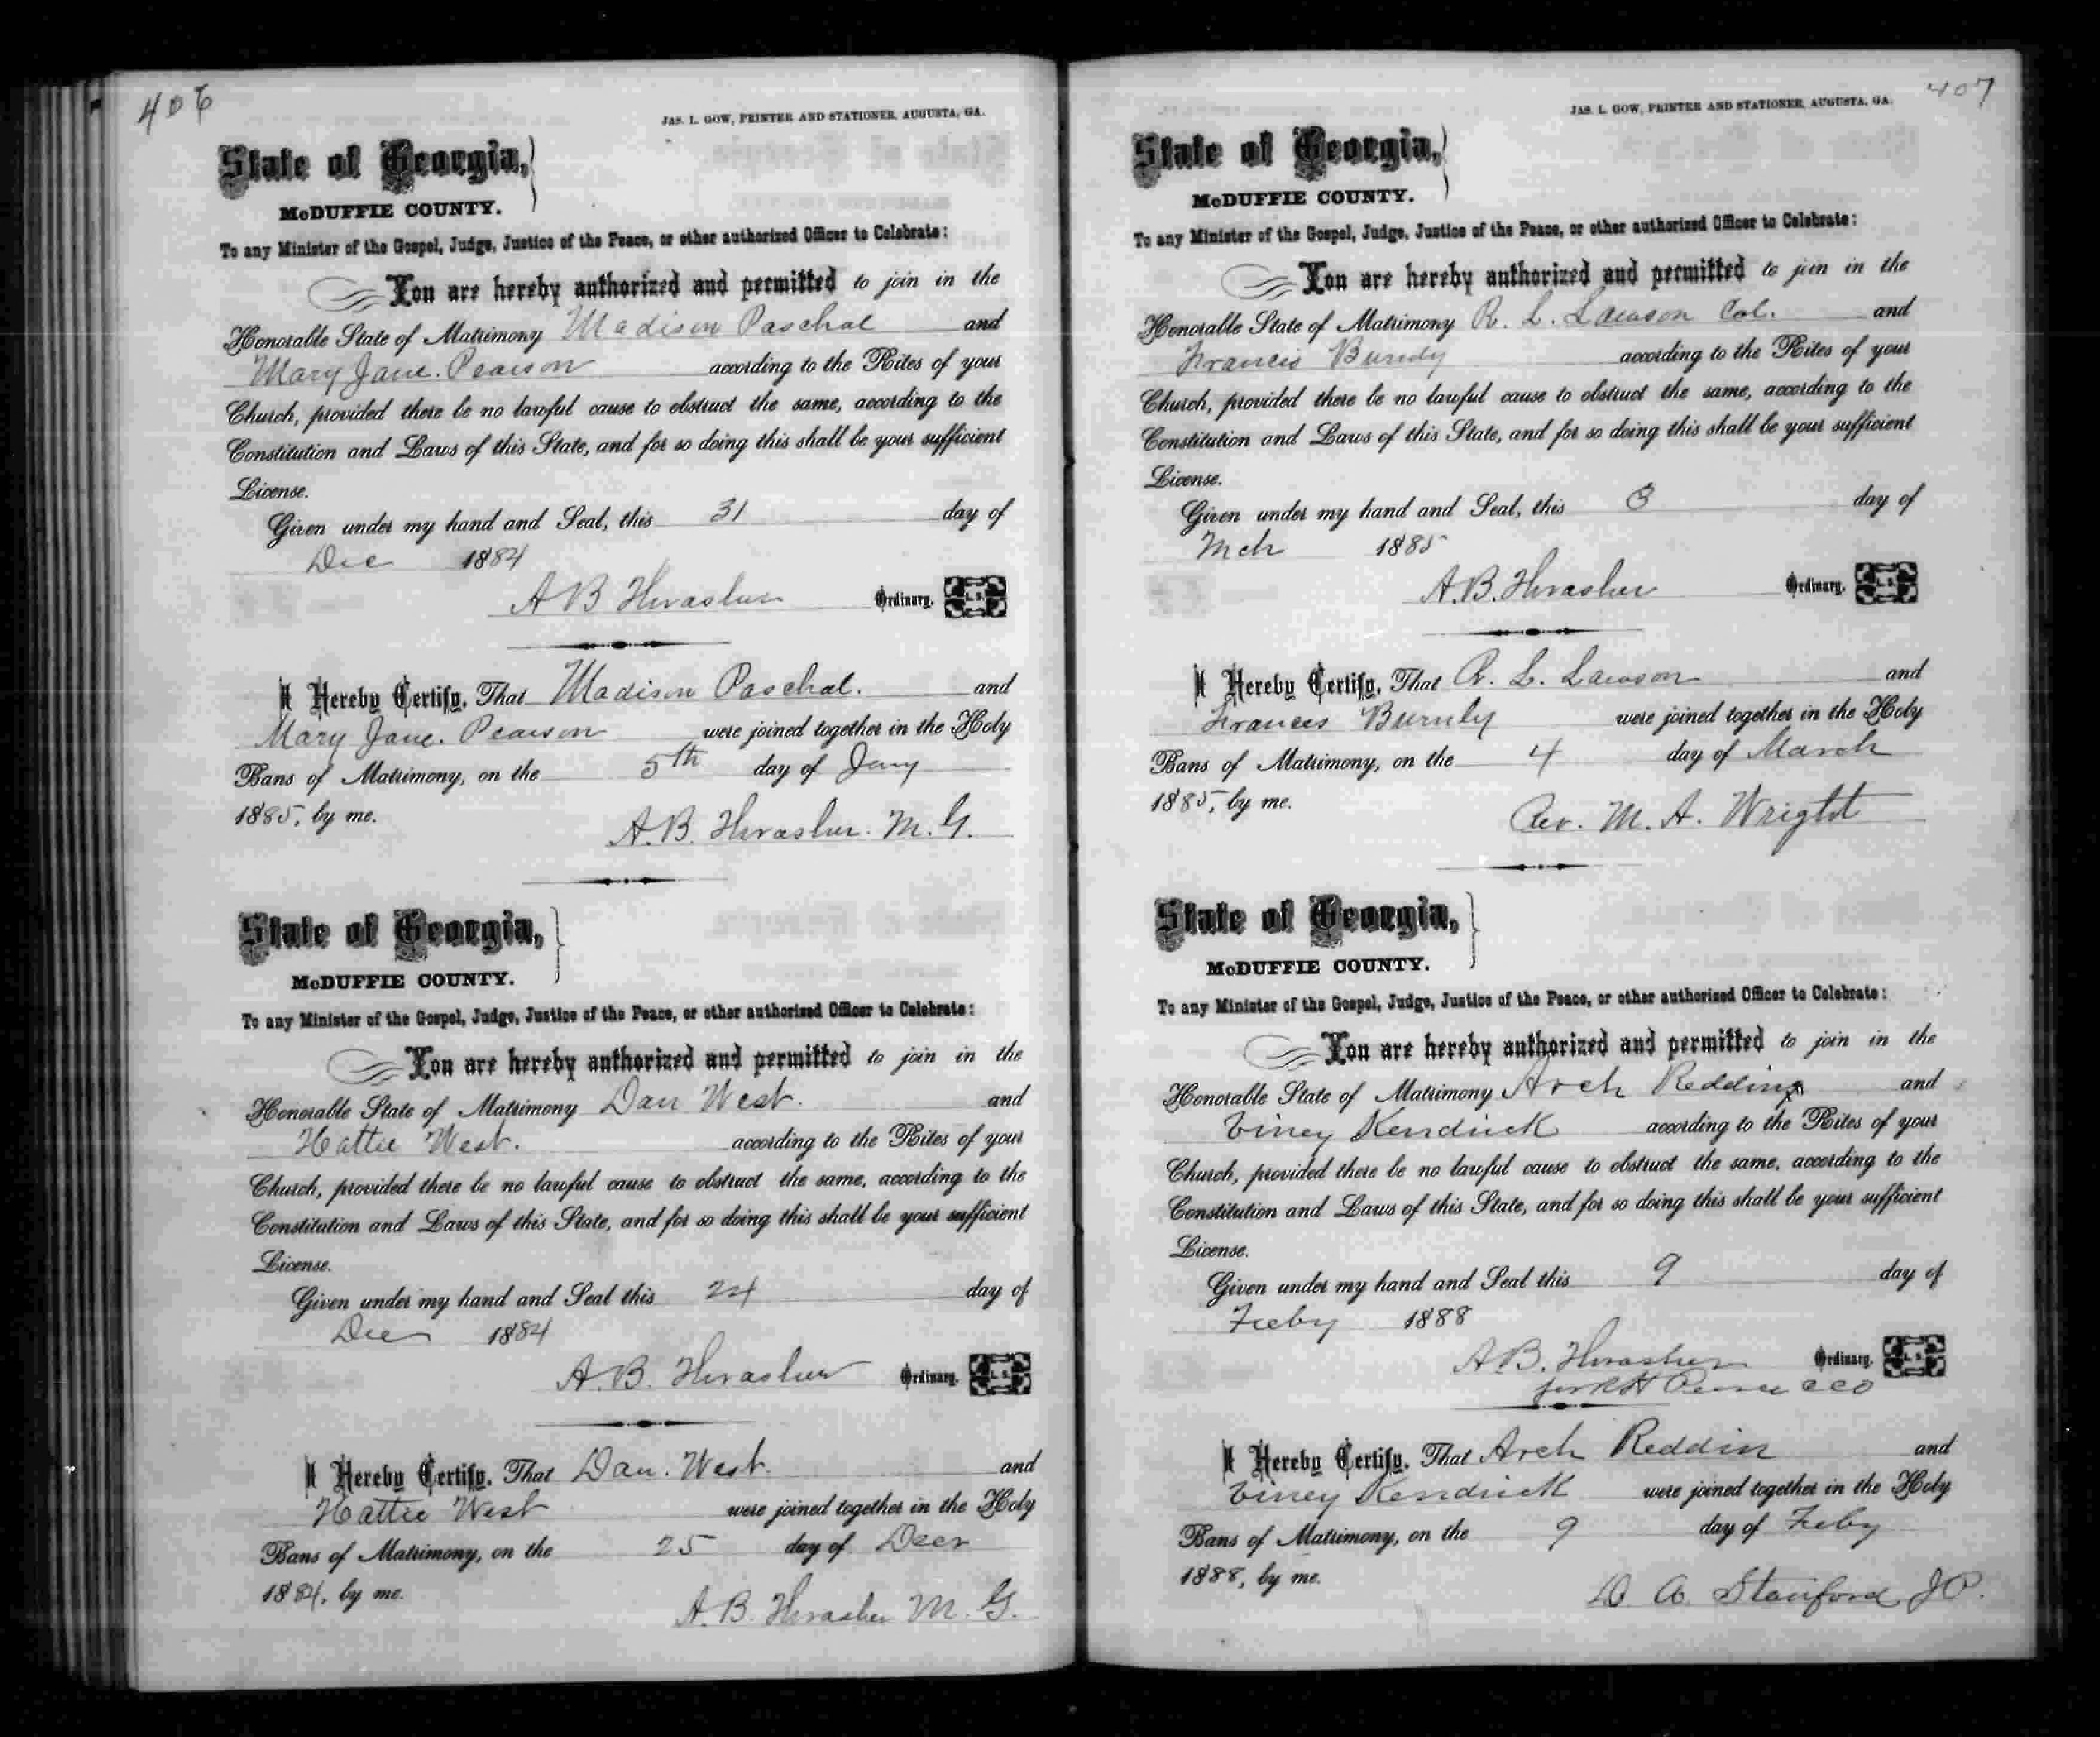 406
JAS. L. GOW, PRINTER AND STATIONER, AUGUSTA, GA.
State of Georgia,
McDUFFIE COUNTY.
To any Minister of the Gospel, Judge, Justice of the Peace, or other authorized Officer to Celebrate:
You are hereby authorized and permitted to join in the
Honorable State of Matrimony Madison Paschal and
Mary Jane. Pearson according to the Rites of your
Church, provided there be no lawful cause to obstruct the same, according to the
Constitution and Laws of this State, and for so doing this shall be your sufficient
License.
Given under my hand and Seal, this 31 day of
Dec 1884
A B Thrasher Ordinary. L. S.
I Hereby Certify, That Madison Paschal. and
Mary Jane. Pearson were joined together in the Holy
Bans of Matrimony, on the 5th day of Jany
1885, by me.
A.B. Thrasher. M.G.
State of Georgia,
McDUFFIE COUNTY.
To any Minister of the Gospel, Judge, Justice of the Peace, or other authorized Officer to Celebrate:
You are hereby authorized and permitted to join in the
Honorable State of Matrimony Dan West. and
Hattie West. according to the Rites of your
Church, provided there be no lawful cause to obstruct the same, according to the
Constitution and Laws of this State, and for so doing this shall be your sufficient
License.
Given under my hand and Seal this 24 day of
Dec 1884
A.B. Thrasher Ordinary. L. S.
I Hereby Certify, That Dan. West. and
Hattie West were joined together in the Holy
Bans of Matrimony, on the 25 day of Decr
1884, by me.
A.B. Thrasher M.G.
407
JAS. L. GOW, PRINTER AND STATIONER, AUGUSTA, GA.
State of Georgia,
McDUFFIE COUNTY.
To any Minister of the Gospel, Judge, Justice of the Peace, or other authorized Officer to Celebrate:
You are hereby authorized and permitted to join in the
Honorable State of Matrimony R. L. Lawson Col. and
Francis Burnly according to the Rites of your
Church, provided there be no lawful cause to obstruct the same, according to the
Constitution and Laws of this State, and for so doing this shall be your sufficient
License.
Given under my hand and Seal, this 3 day of
Mch 1885
A.B. Thrasher Ordinary. L. S.
I Hereby Certify, That R. L. Lawson and
Frances Burnly were joined together in the Holy
Bans of Matrimony, on the 4 day of March
1885, by me.
Rev. M. A. Wright
State of Georgia,
McDUFFIE COUNTY.
To any Minister of the Gospel, Judge, Justice of the Peace, or other authorized Officer to Celebrate:
You are hereby authorized and permitted to join in the
Honorable State of Matrimony Arch Reddin and
Viney Kendrick according to the Rites of your
Church, provided there be no lawful cause to obstruct the same, according to the
Constitution and Laws of this State, and for so doing this shall be your sufficient
License.
Given under my hand and Seal this 9 day of
Feby 1888
A.B. Thrasher Ordinary. L. S.
I Hereby Certify, That Arch Reddin and
Viney Kendrick were joined together in the Holy
Bans of Matrimony, on the 9 day of Feby
1888, by me.
D A Stanford JP.